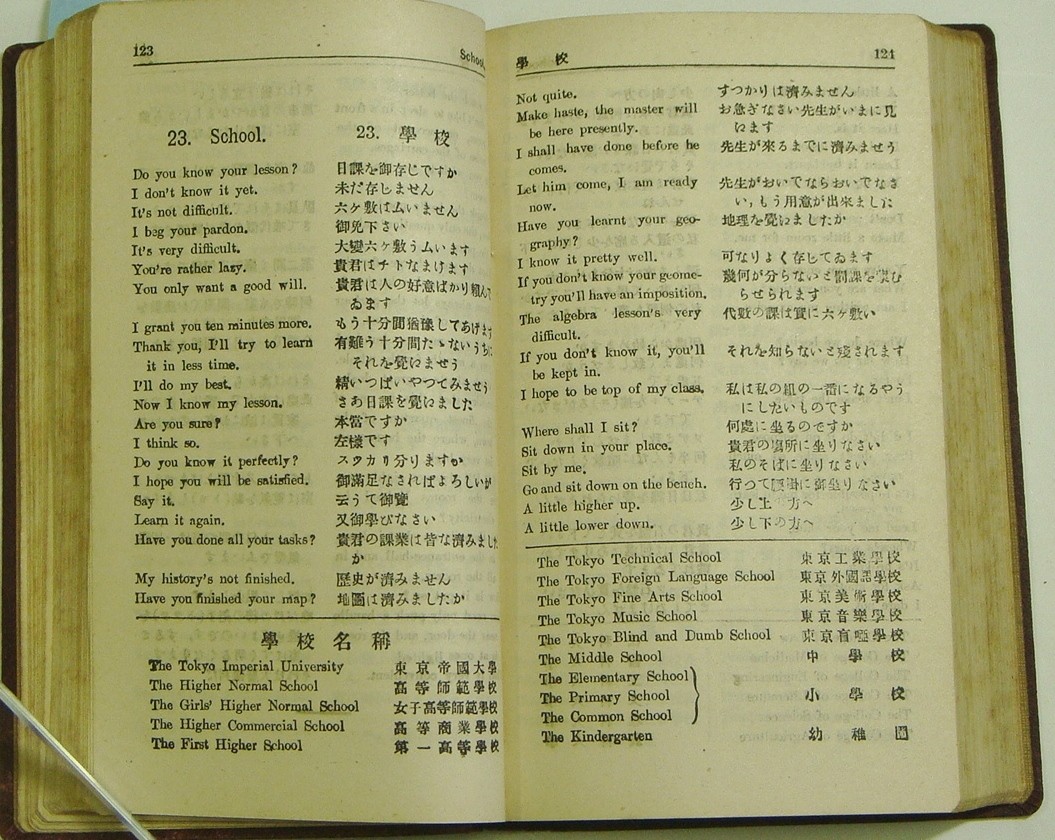 123
School.
23. School.
23. 學校
Do you know your lesson?
日課を御存じですか
I don't know it yet.
未だ存じません
It's not difficult.
六ケ敷は厶いません
I beg your pardon.
御免下さい
It's very difficult.
大變六ケ敷う厶います
You're rather lazy.
貴君はチトなまけます
You only want a good will.
貴君は人の好意ばかり頼んで
ゐます
I grant you ten minutes more.
もう十分間猶豫してあげます
Thank you, I'll try to learn
有難う十分間たゝないうちに
it in less time.
それを覺いませう
I'll do my best.
精いつぱいやつてみませう
Now I know my lesson.
さあ日課を覺いました
Are you sure?
本當ですか
I think so.
左樣です
Do you know it perfectly?
スツカリ分りますか
I hope you will be satisfied.
御滿足なさればよろしいが
Say it.
云うて御覽
Learn it again.
又御學びなさい
Have you done all your tasks?
貴君の課業は皆な濟みました
か
My history's not finished.
歷史が濟みません
Have you finished your map?
地圖は濟みましたか
學校名稱
The Tokyo Imperial University
東京帝國大學
The Higher Normal School
高等師範學校
The Girls' Higher Normal School
女子高等師範學校
The Higher Commercial School
高等商業學校
The First Higher School
第一高等學校
學校
124
Not quite.
すつかりは濟みません
Make haste, the master will
お急ぎなさい先生がいまに見
be here presently.
います
I shall have done before he
先生が來るまでに濟みませう
comes.
Let him come, I am ready
先生がおいでならおいでなさ
now.
い, もう用意が出來ました
Have you learnt your geo-
地理を覺いましたか
graphy?
I know it pretty well.
可なりよく存じてゐます
If you don't know your geome-
幾何が分らないと罰課を
try you'll have an imposition.
らせられます
The algebra lesson's very
代數の課は實に六ケ敷い
difficult.
If you don't know it, you'll
それを知らないと殘されます
be kept in.
I hope to be top of my class.
私は私の組の一番になるやう
にしたいものです
Where shall I sit?
何處に坐るのですか
Sit down in your place.
貴君の塲所に坐りなさい
Sit by me.
私のそばに坐りなさい
Go and sit down on the bench.
行つて腰掛に御坐りなさい
A little higher up.
少し上の方へ
A little lower down.
少し下の方へ
The Tokyo Technical School
東京工業學校
The Tokyo Foreign Language School
東京外國語學校
The Tokyo Fine Arts School
東京美術學校
The Tokyo Music School
東京音樂學校
The Tokyo Blind and Dumb School
東京盲啞學校
The Middle School
中學校
The Elementary School
The Primary School
小學校
The Common School
The Kindergarten
幼稚園